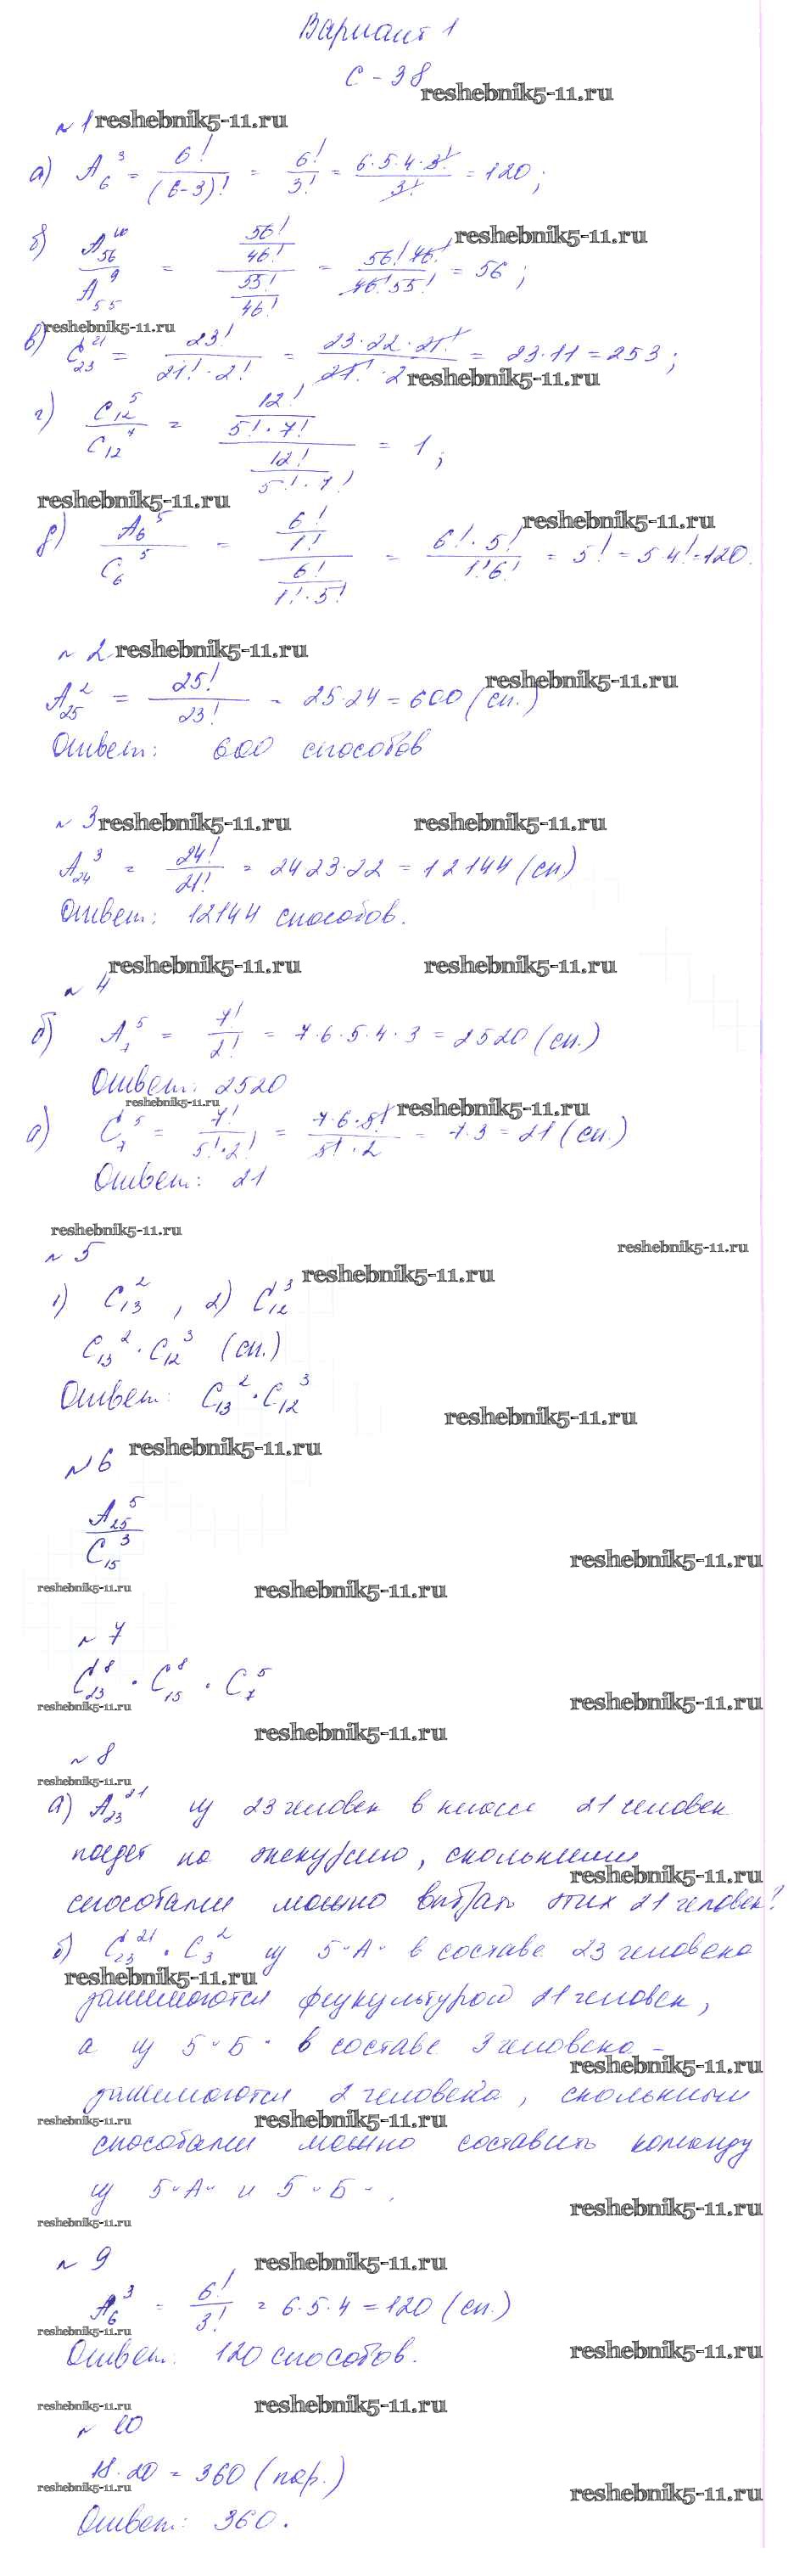 Вариант 1
С - 38
reshebnik5-11.ru
№ 1 reshebnik5-11.ru
а) A₆³ = 6!/(6-3)! = 6!/3! = 6·5·4·3!/3! = 120;
reshebnik5-11.ru
б) A₅₆¹⁰/A₅₅⁹ = (56!/46!)/(55!/46!) = 56! 46!/46! 55! = 56;
reshebnik5-11.ru
в) C₂₃²¹ = 23!/21!·2! = 23·22·21!/21!·2 = 23·11 = 253;
reshebnik5-11.ru
г) C₁₂⁵/C₁₂⁷ = (12!/5!·7!)/(12!/5!·7!) = 1;
reshebnik5-11.ru
reshebnik5-11.ru
д) A₆⁵/C₆⁵ = (6!/1!)/(6!/1!·5!) = 6!·5!/1!6! = 5! = 5·4! = 120.
№ 2 reshebnik5-11.ru
reshebnik5-11.ru
A₂₅² = 25!/23! = 25·24 = 600 (сп.)
Ответ: 600 способов
№ 3 reshebnik5-11.ru reshebnik5-11.ru
A₂₄³ = 24!/21! = 24 23·22 = 12144 (сп)
Ответ: 12144 способов.
reshebnik5-11.ru reshebnik5-11.ru
№ 4
б) A₇⁵ = 7!/2! = 7·6·5·4·3 = 2520 (сп.)
Ответ: 2520
reshebnik5-11.ru reshebnik5-11.ru
а) C₇⁵ = 7!/5!·2! = 7·6·5!/5!·2 = 7·3 = 21 (сп.)
Ответ: 21
reshebnik5-11.ru
№ 5 reshebnik5-11.ru
reshebnik5-11.ru
1) C₁₃², 2) C₁₂³
C₁₃²·C₁₂³ (сп.)
Ответ: C₁₃²·C₁₂³
reshebnik5-11.ru
№ 6 reshebnik5-11.ru
A₂₅⁵/C₁₅³
reshebnik5-11.ru
reshebnik5-11.ru reshebnik5-11.ru
№ 7
C₂₃⁸ · C₁₅⁸ · C₇⁵
reshebnik5-11.ru reshebnik5-11.ru
reshebnik5-11.ru
№ 8
reshebnik5-11.ru
а) A₂₃²¹ из 23 человек в классе 21 человек
поедет на экскурсию, сколькими
reshebnik5-11.ru
способами можно выбрать этих 21 человек?
б) C₂₃²¹ · C₃² из 5"А" в составе 23 человека
reshebnik5-11.ru
занимаются физкультурой 21 человек,
а из 5"Б" в составе 3 человека -
reshebnik5-11.ru
занимаются 2 человека, сколькими
reshebnik5-11.ru reshebnik5-11.ru
способами можно составить команду
из 5"А" и 5"Б".
reshebnik5-11.ru
reshebnik5-11.ru
№ 9 reshebnik5-11.ru
A₆³ = 6!/3! = 6·5·4 = 120 (сп.)
reshebnik5-11.ru
Ответ: 120 способов.
reshebnik5-11.ru
reshebnik5-11.ru reshebnik5-11.ru
№ 10
18·20 = 360 (пар.)
reshebnik5-11.ru reshebnik5-11.ru
Ответ: 360.